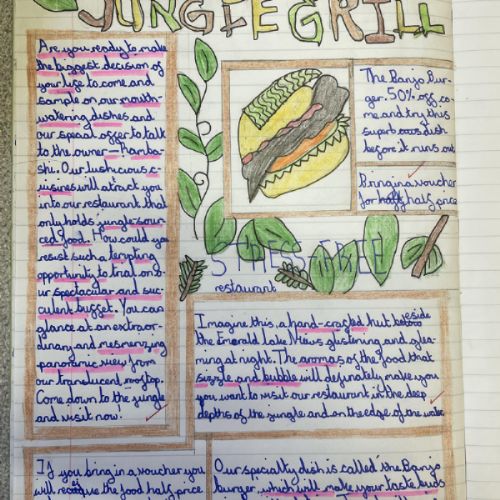 JUNGLE GRILL
Are you ready to make
the biggest decision of
your life to come and
sample on our mouth-
watering dishes and
our special offer to talk
to the owner - hamba-
shi. Our lushious c-
uisines will attract you
into our restaurant that
only holds jungle sour-
ced food. How could you
resist such a tempting
opportunity to trial on o-
ur spectacular and suc-
culent buffet. You can
glance at an extraor-
dinary and mesmerizing
panoramic view from
our translucent rooftop.
Come down to the jungle
and visit now!
The Banjo Bur-
ger. 50% off co-
me and try this
superb cows dish
before it runs out
Bring in a voucher
for half price
STRESS-FREE
restaurant
Imagine this, a hand-crafted hut beside
the Emerald Lake Views glistening and glea-
ming at night. The aromas of the food that
sizzle and bubble will definately make you
you want to visit our restaurant in the deep
depths of the jungle and on the edge of the
If you bring in a voucher you
will receive the food half price
Our specialty dish is called the Banjo
burger, which will make your taste buds